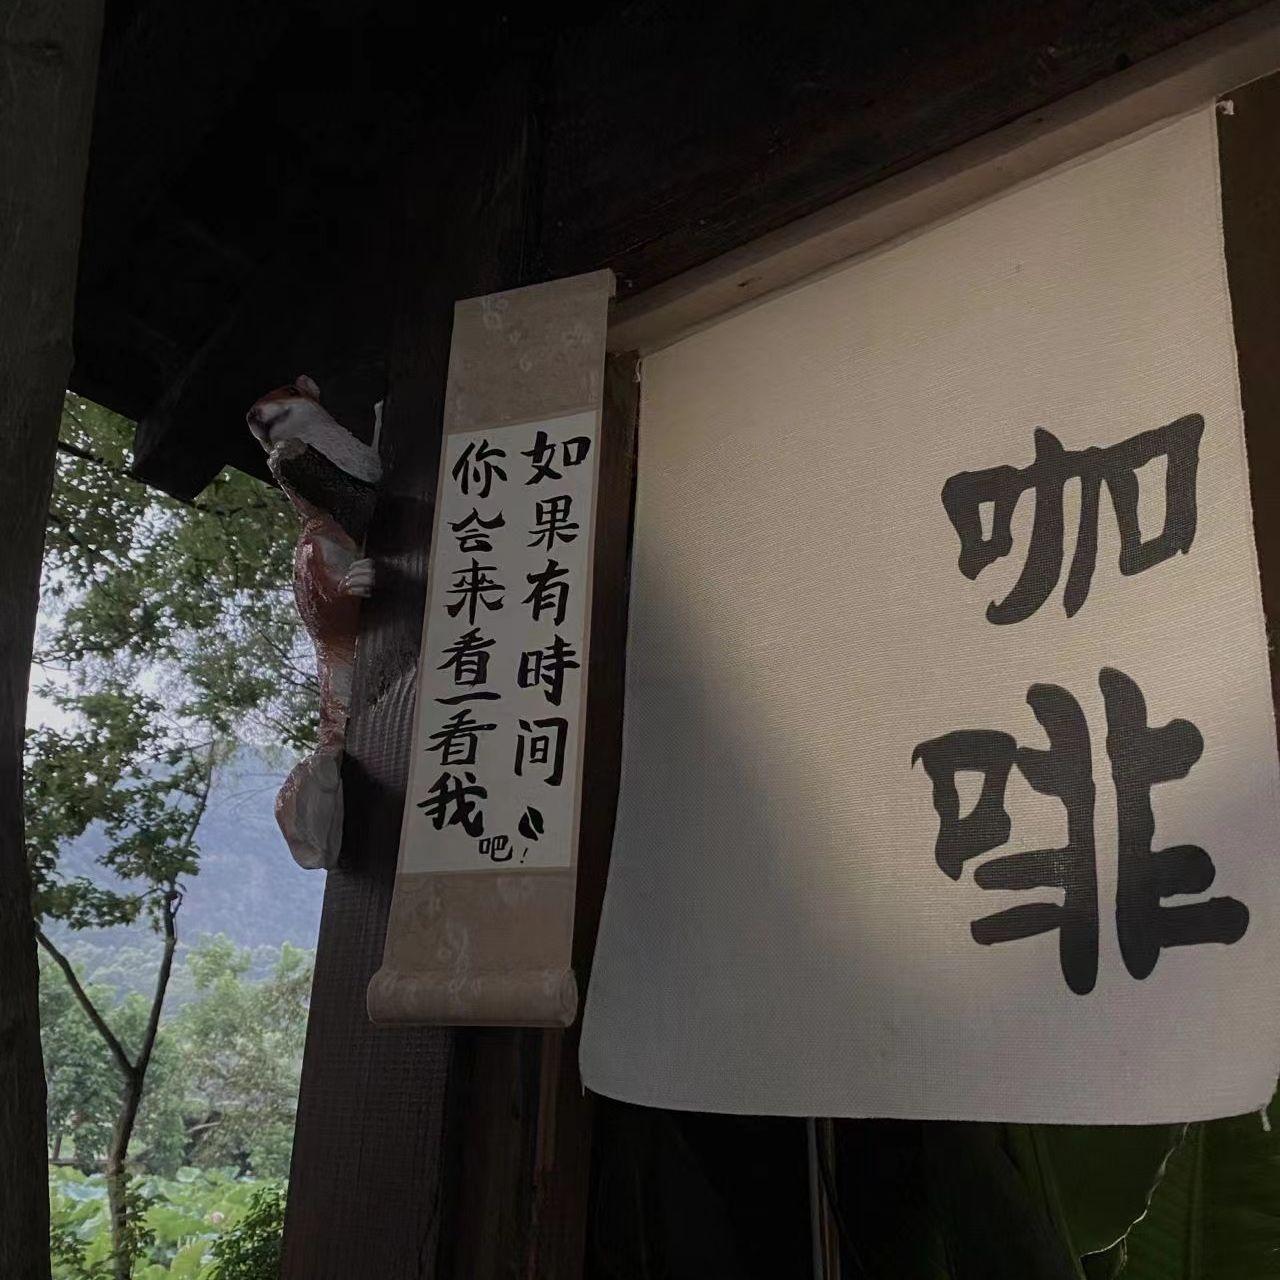 如果有時间
你会來看一看我
吧！
咖啡